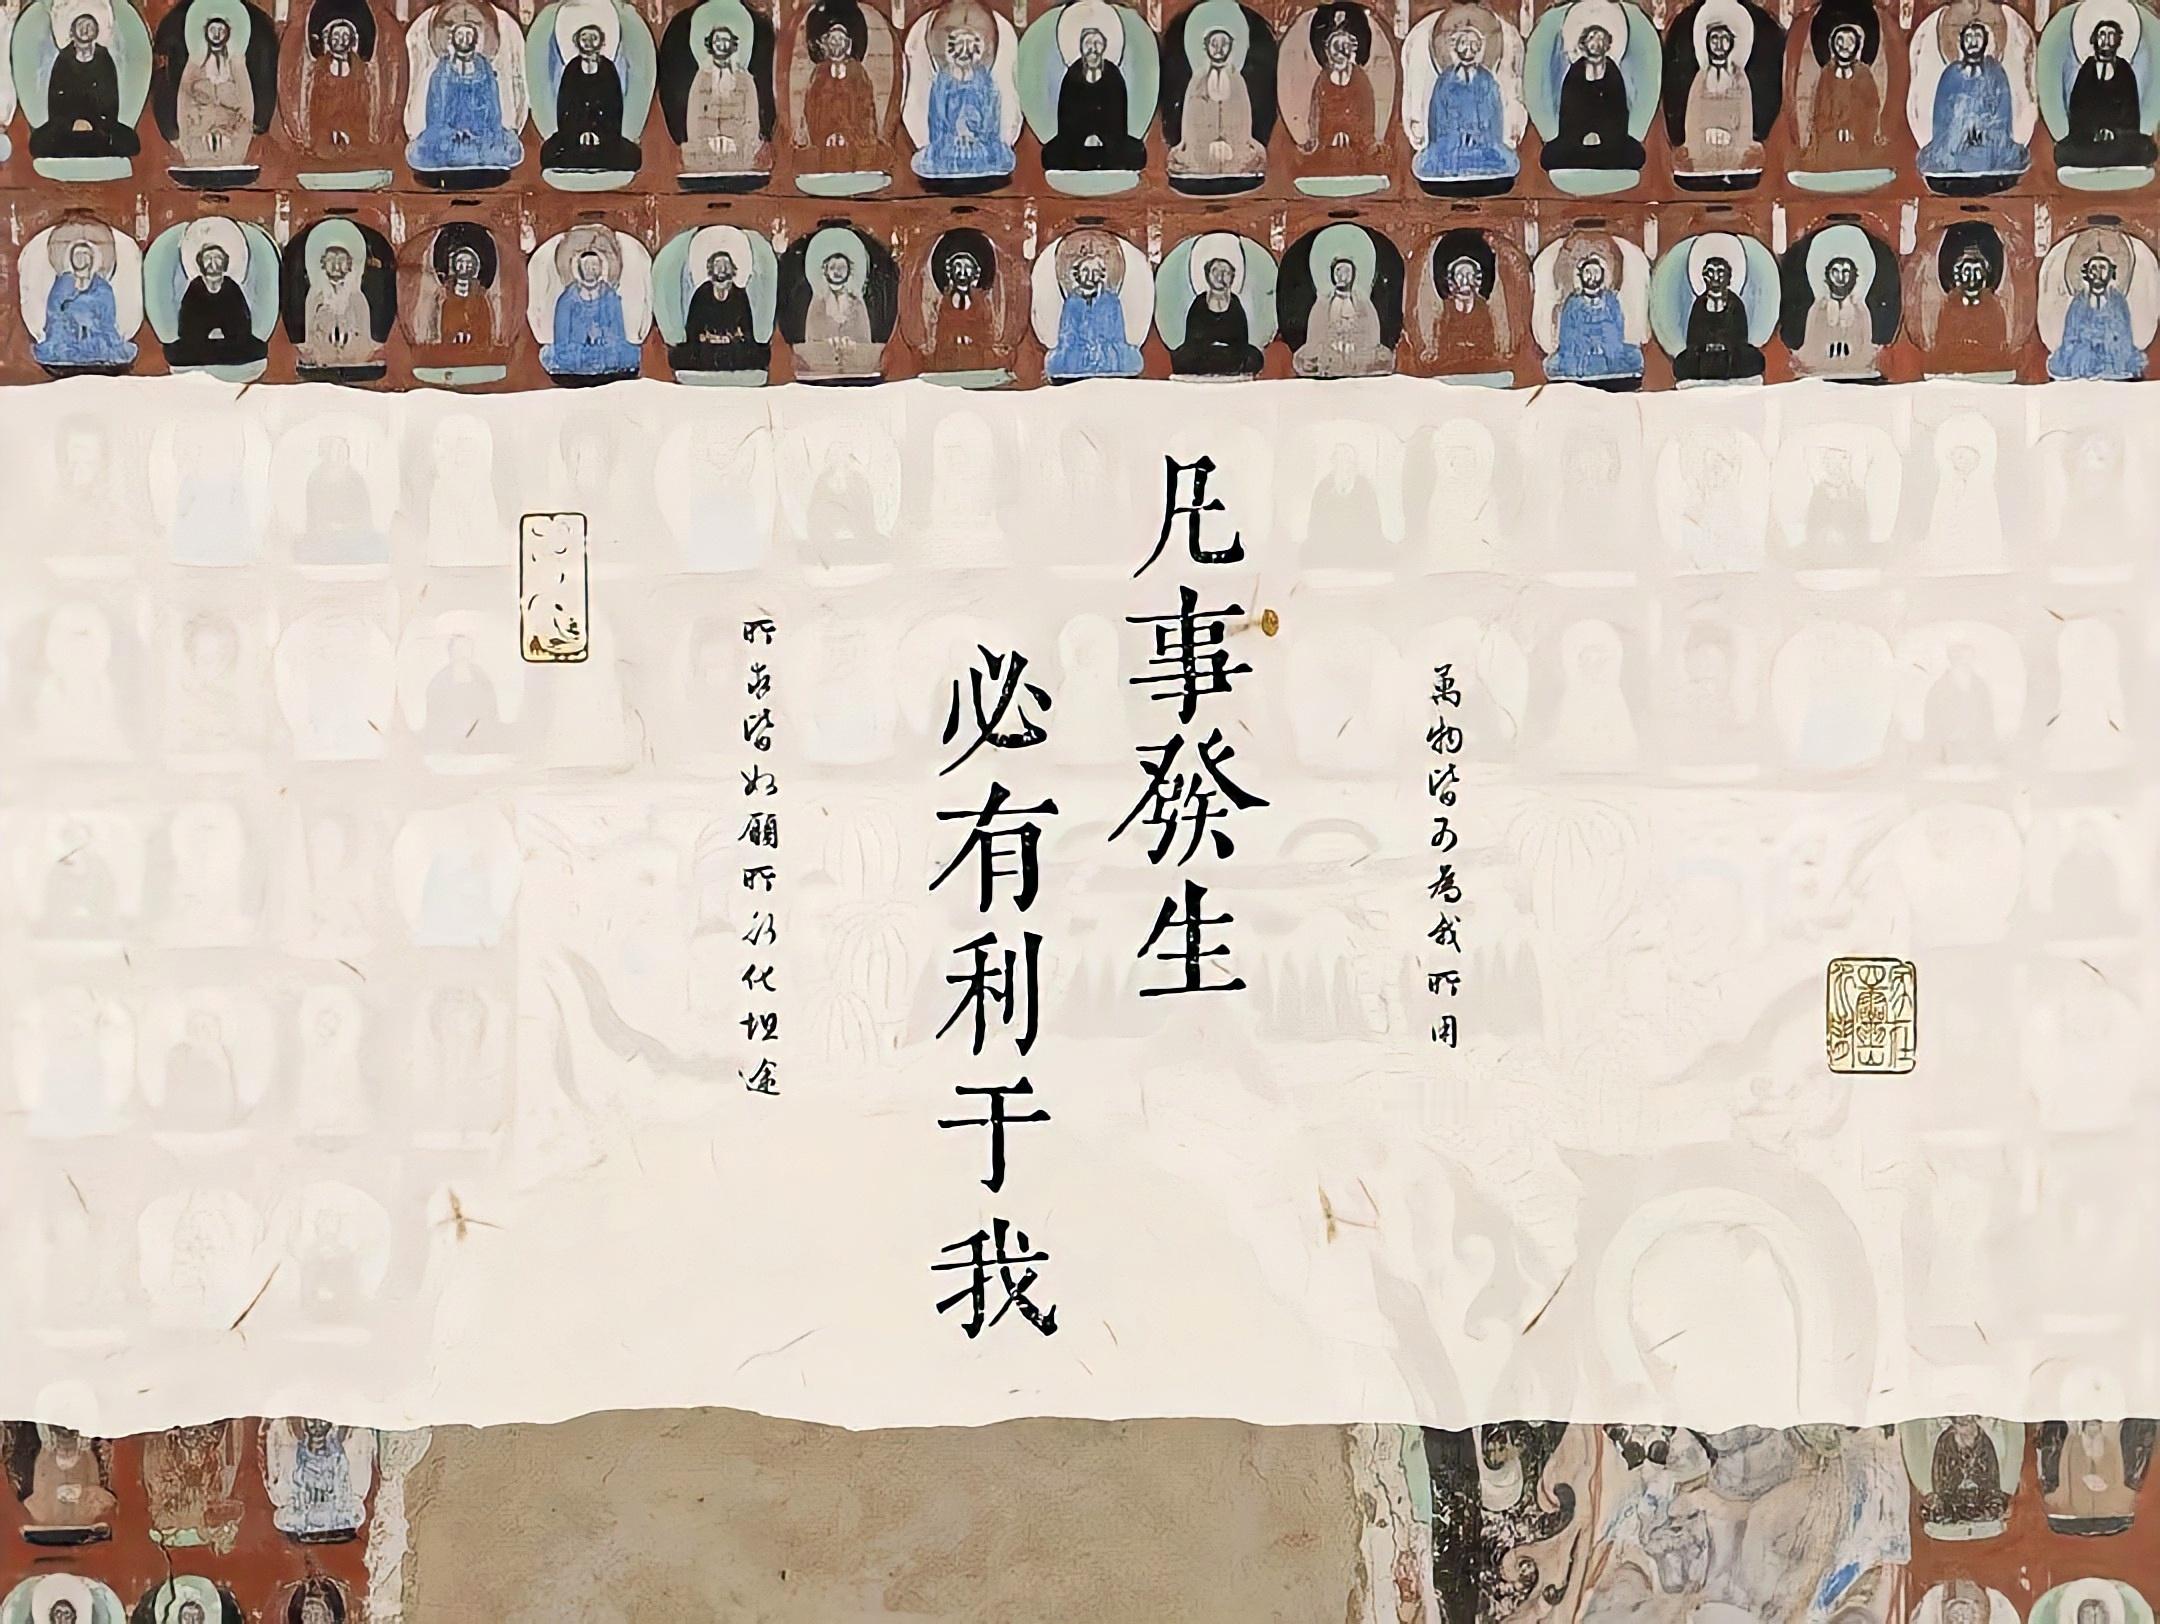 萬物皆可為我所用
凡事發生
必有利于我
所求皆如願所行化坦途